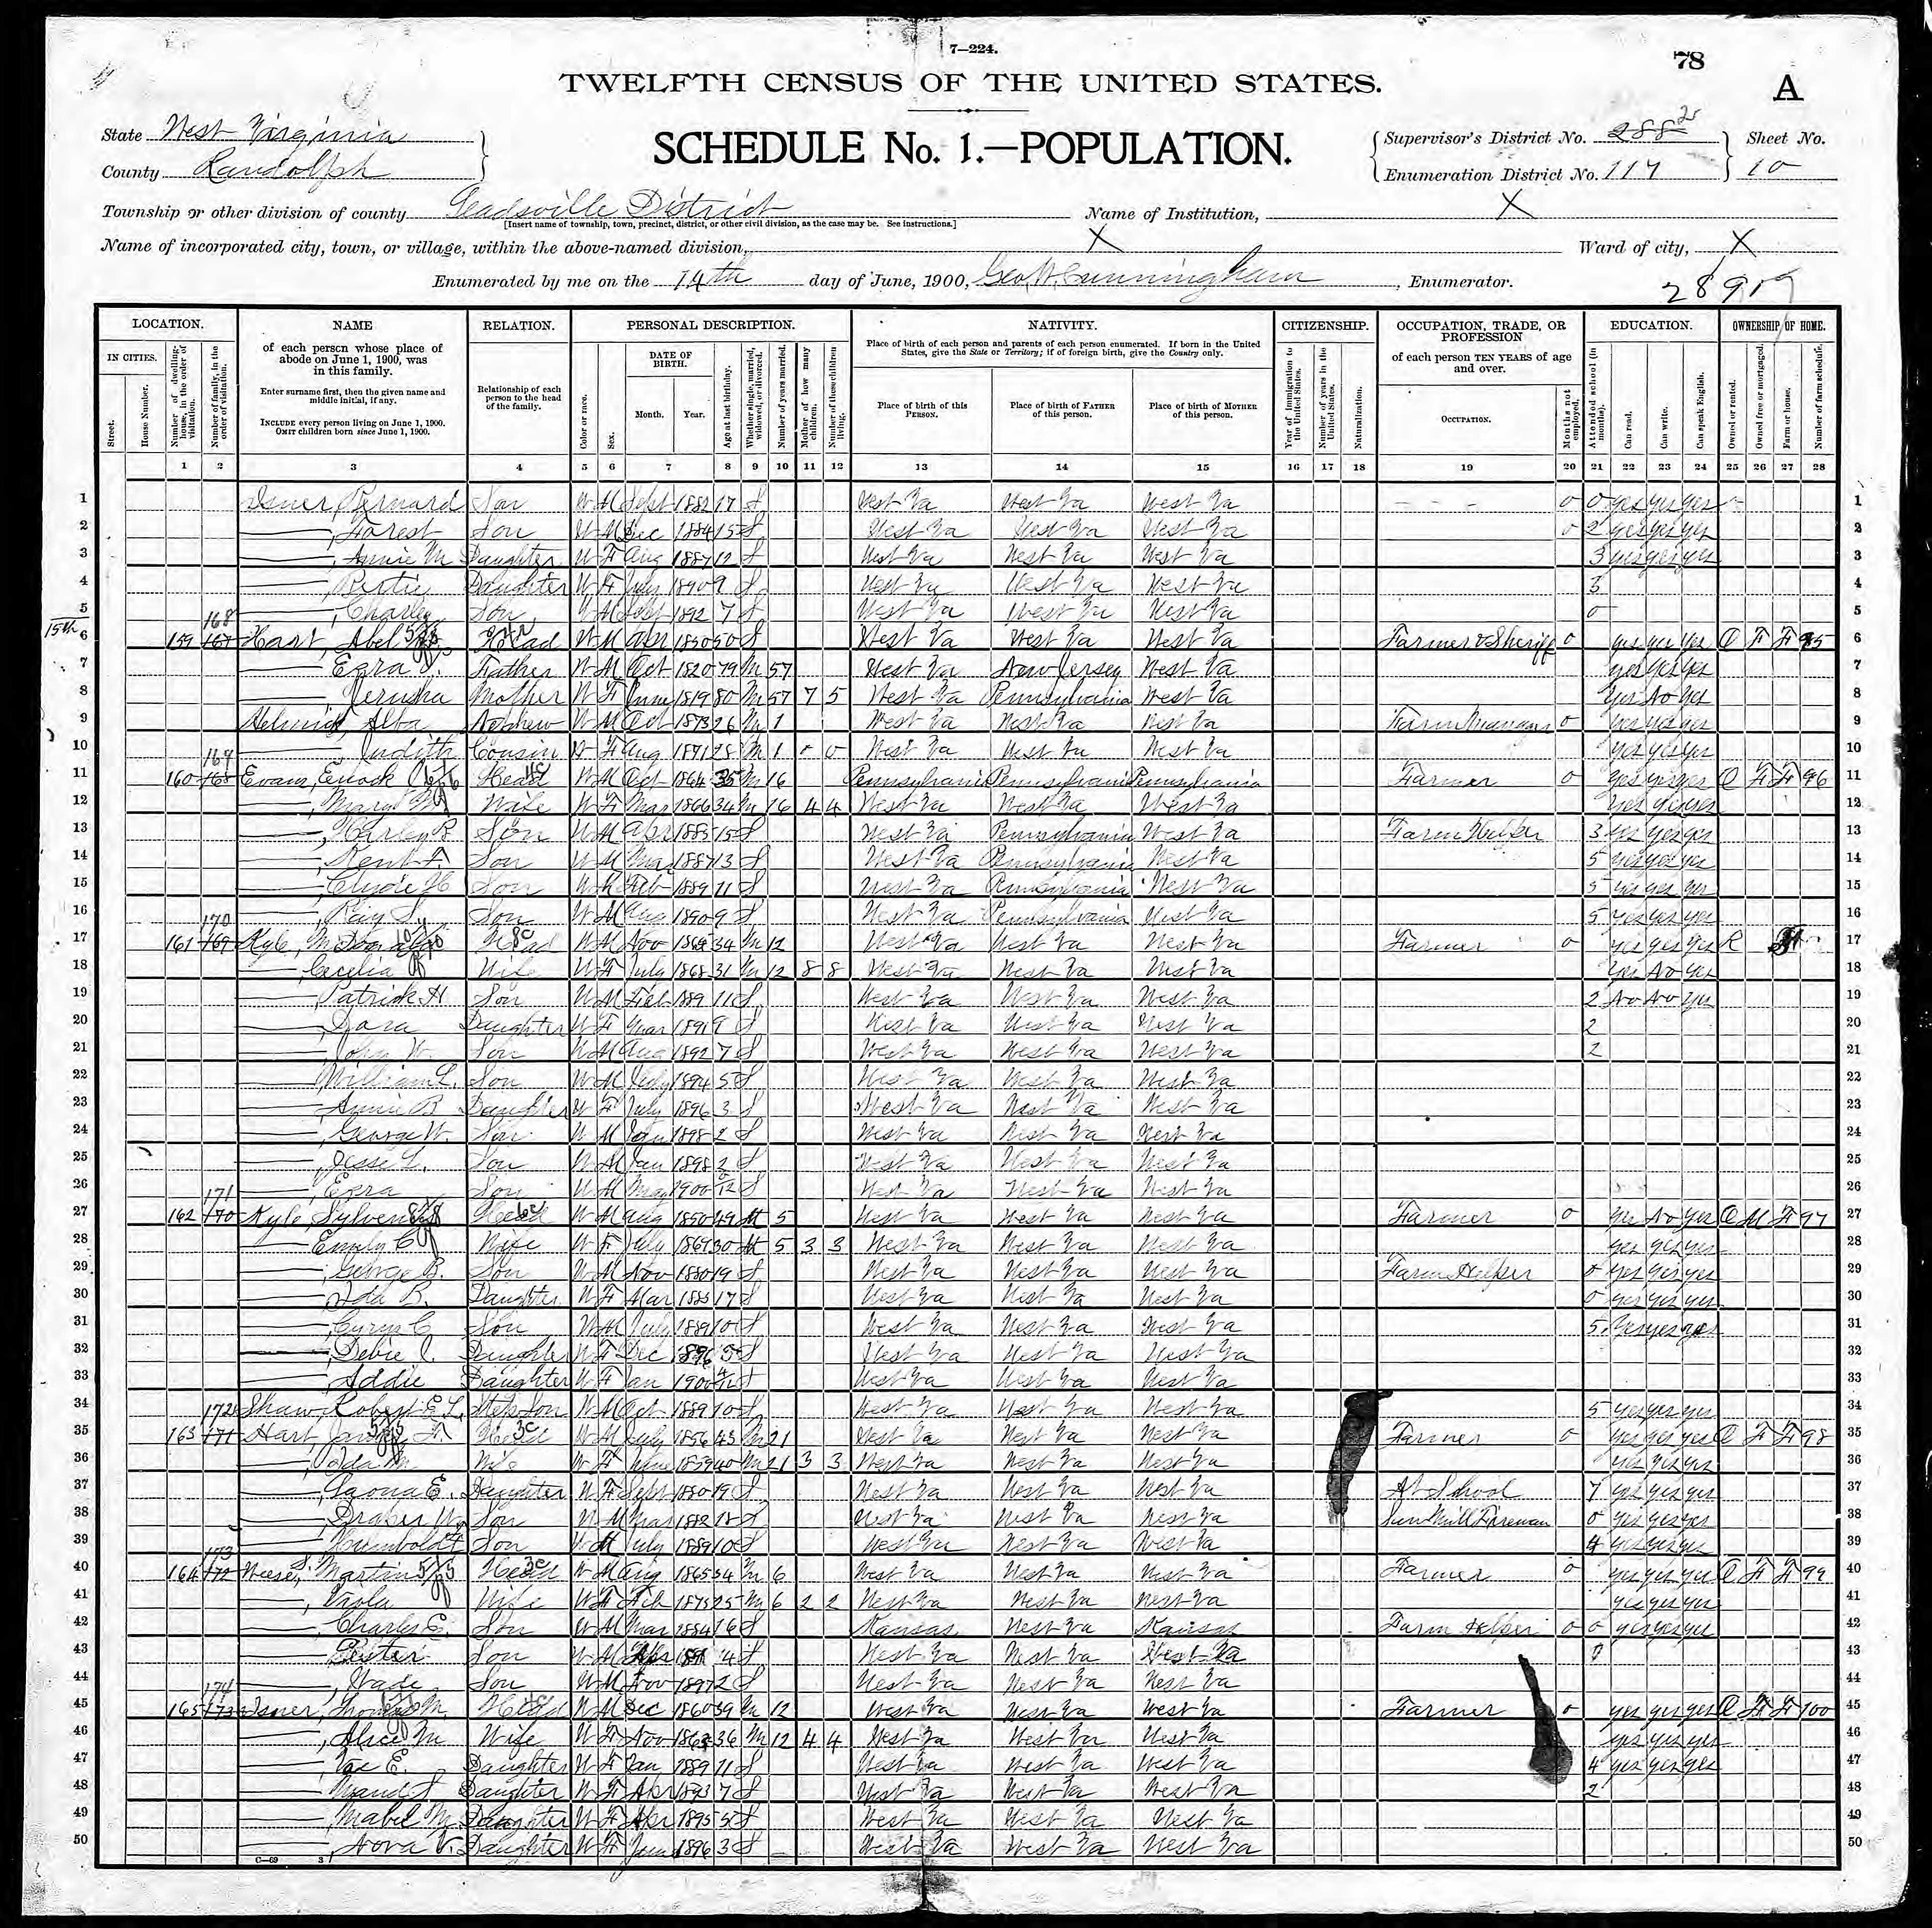 7—224.
78
TWELFTH CENSUS OF THE UNITED STATES.
A
State West Virginia
County Randolph
SCHEDULE No. 1.—POPULATION.
Supervisor's District No. 288 2
Enumeration District No. 117
Sheet No.
10
Township or other division of county Leadsville District
[Insert name of township, town, precinct, district, or other civil division, as the case may be. See instructions.]
Name of Institution, X
Name of incorporated city, town, or village, within the above-named division, X
Ward of city, X
Enumerated by me on the 14th day of June, 1900, Geo. W. Cunningham, Enumerator.
LOCATION. NAME RELATION. PERSONAL DESCRIPTION. NATIVITY. CITIZENSHIP. OCCUPATION, TRADE, OR PROFESSION EDUCATION. OWNERSHIP OF HOME.
IN CITIES.
Street.
House Number.
Number of dwelling-house, in the order of visitation.
Number of family, in the order of visitation.
of each person whose place of abode on June 1, 1900, was in this family.
Enter surname first, then the given name and middle initial, if any.
INCLUDE every person living on June 1, 1900.
OMIT children born since June 1, 1900.
Relationship of each person to the head of the family.
Color or race.
Sex.
DATE OF BIRTH.
Month.
Year.
Age at last birthday.
Whether single, married, widowed, or divorced.
Number of years married.
Mother of how many children.
Number of these children living.
Place of birth of each person and parents of each person enumerated. If born in the United States, give the State or Territory; if of foreign birth, give the Country only.
Place of birth of this PERSON.
Place of birth of FATHER of this person.
Place of birth of MOTHER of this person.
Year of immigration to the United States.
Number of years in the United States.
Naturalization.
of each person TEN YEARS of age and over.
OCCUPATION.
Months not employed.
Attended school (in months).
Can read.
Can write.
Can speak English.
Owned or rented.
Owned free or mortgaged.
Farm or house.
Number of farm schedule.
1 2 3 4 5 6 7 8 9 10 11 12 13 14 15 16 17 18 19 20 21 22 23 24 25 26 27 28
1 Isner, Bernard Son W M Sept 1882 17 S West Va West Va West Va 0 0 yes yes yes 1
2 , Forest Son W M Dec 1884 15 S West Va West Va West Va 0 2 yes yes yes 2
3 , Annie M Daughter W F Aug 1887 12 S West Va West Va West Va 3 yes yes yes 3
4 , Bertie Daughter W F July 1890 9 S West Va West Va West Va 3 4
5 , Charley Son W M Sept 1892 7 S West Va West Va West Va 0 5
15th 6 159 167 168 Hart, Abel Head W M Apr 1850 50 S West Va West Va West Va Farmer & Sheriff 0 yes yes yes O F F 95 6
7 Ezra Father W M Oct 1820 79 M 57 West Va New Jersey West Va yes yes yes 7
8 Jerusha Mother W F June 1819 80 M 57 7 5 West Va Pennsylvania West Va yes No yes 8
9 Helmick, Alba Nephew W M Oct 1873 26 M 1 West Va West Va West Va Farm Manager 0 yes yes yes 9
10 Judith Cousin W F Aug 1871 28 M 1 0 0 West Va West Va West Va yes yes yes 10
11 160 168 169 Evans, Enock Head W M Oct 1864 35 M 16 Pennsylvania Pennsylvania Pennsylvania Farmer 0 yes yes yes O F F 96 11
12 , Mary M Wife W F Mar 1866 34 M 16 4 4 West Va West Va West Va yes yes yes 12
13 , Harley B Son W M Apr 1885 15 S West Va Pennsylvania West Va Farm Helper 3 yes yes yes 13
14 , Kent Son W M Mar 1887 13 S West Va Pennsylvania West Va 5 yes yes yes 14
15 , Clyde H Son W M Feb 1889 11 S West Va Pennsylvania West Va 5 yes yes yes 15
16 , Ray Son W M Aug 1890 9 S West Va Pennsylvania West Va 5 yes yes yes 16
17 161 169 170 Kyle, M Head W M Nov 1865 34 M 12 West Va West Va West Va Farmer 0 yes yes yes R 17
18 Cecelia Wife W F July 1868 31 M 12 8 8 West Va West Va West Va yes No yes 18
19 Patrick H Son W M Feb 1889 11 S West Va West Va West Va 2 No No yes 19
20 Daughter W F Mar 1891 9 S West Va West Va West Va 2 20
21 , John W. Son W M Aug 1892 7 S West Va West Va West Va 2 21
22 William L. Son W M July 1894 5 S West Va West Va West Va 22
23 , Annie B Daughter W F July 1896 3 S West Va West Va West Va 23
24 , George W. Son W M Jan 1898 2 S West Va West Va West Va 24
25 , Jesse L. Son W M Jan 1898 2 S West Va West Va West Va 25
26 , Ezra Son W M May 1900 /12 S West Va West Va West Va 26
27 162 170 171 Kyle, Sylvenus Head W M Aug 1850 49 M 5 West Va West Va West Va Farmer 0 yes No yes O M F 97 27
28 Emily C Wife W F July 1869 30 M 5 3 3 West Va West Va West Va yes yes yes 28
29 , George B. Son W M Nov 1880 19 S West Va West Va West Va Farm Helper 0 yes yes yes 29
30 , Ida B. Daughter W F Mar 1883 17 S West Va West Va West Va 0 yes yes yes 30
31 , Cyrus C Son W M July 1889 10 S West Va West Va West Va 5 yes yes yes 31
32 , Daughter W F Dec S West Va West Va West Va 32
33 , Addie Daughter W F Jan 1900 4/12 S West Va West Va West Va 33
34 Shaw, Robert E L. Step Son W M Oct 1889 10 S West Va West Va West Va 5 yes yes yes 34
35 163 171 172 Hart, Head W M July 1856 43 M 21 West Va West Va West Va Farmer 0 yes yes yes O F F 98 35
36 , Ida M Wife W F June 1859 40 M 21 3 3 West Va West Va West Va yes yes yes 36
37 , Leona E. Daughter W F Sept 1880 19 S West Va West Va West Va At School 7 yes yes yes 37
38 , Draper W. Son W M Mar 1882 18 S West Va West Va West Va Saw Mill Fireman 0 yes yes yes 38
39 , Humboldt Son W M July 1889 10 S West Va West Va West Va 4 yes yes yes 39
40 164 172 173 Weese, Martin Head W M Aug 1865 34 M 6 West Va West Va West Va Farmer 0 yes yes yes O F F 99 40
41 , Viola Wife W F Feb 1875 25 M 6 2 2 West Va West Va West Va yes yes yes 41
42 , Charles E. Son W M Mar 1884 16 S Kansas West Va Kansas Farm Helper 0 0 yes yes yes 42
43 Son W M 4 S West Va West Va West Va 0 43
44 , Wade Son W M Nov 1897 2 S West Va West Va West Va 44
45 165 173 174 Isner, Thomas M. Head W M Dec 1860 39 M 12 West Va West Va West Va Farmer 0 yes yes yes O F F 100 45
46 , Alice M Wife W F Nov 1863 36 M 12 4 4 West Va West Va West Va yes yes yes 46
47 , E. Daughter W F Jan 1889 11 S West Va West Va West Va 4 yes yes yes 47
48 , Maud Daughter W F Apr 1893 7 S West Va West Va West Va 2 48
49 , Mabel M Daughter W F Apr 1895 5 S West Va West Va West Va 49
50 , Nova V. Daughter W F June 1896 3 S West Va West Va West Va 50
C—69